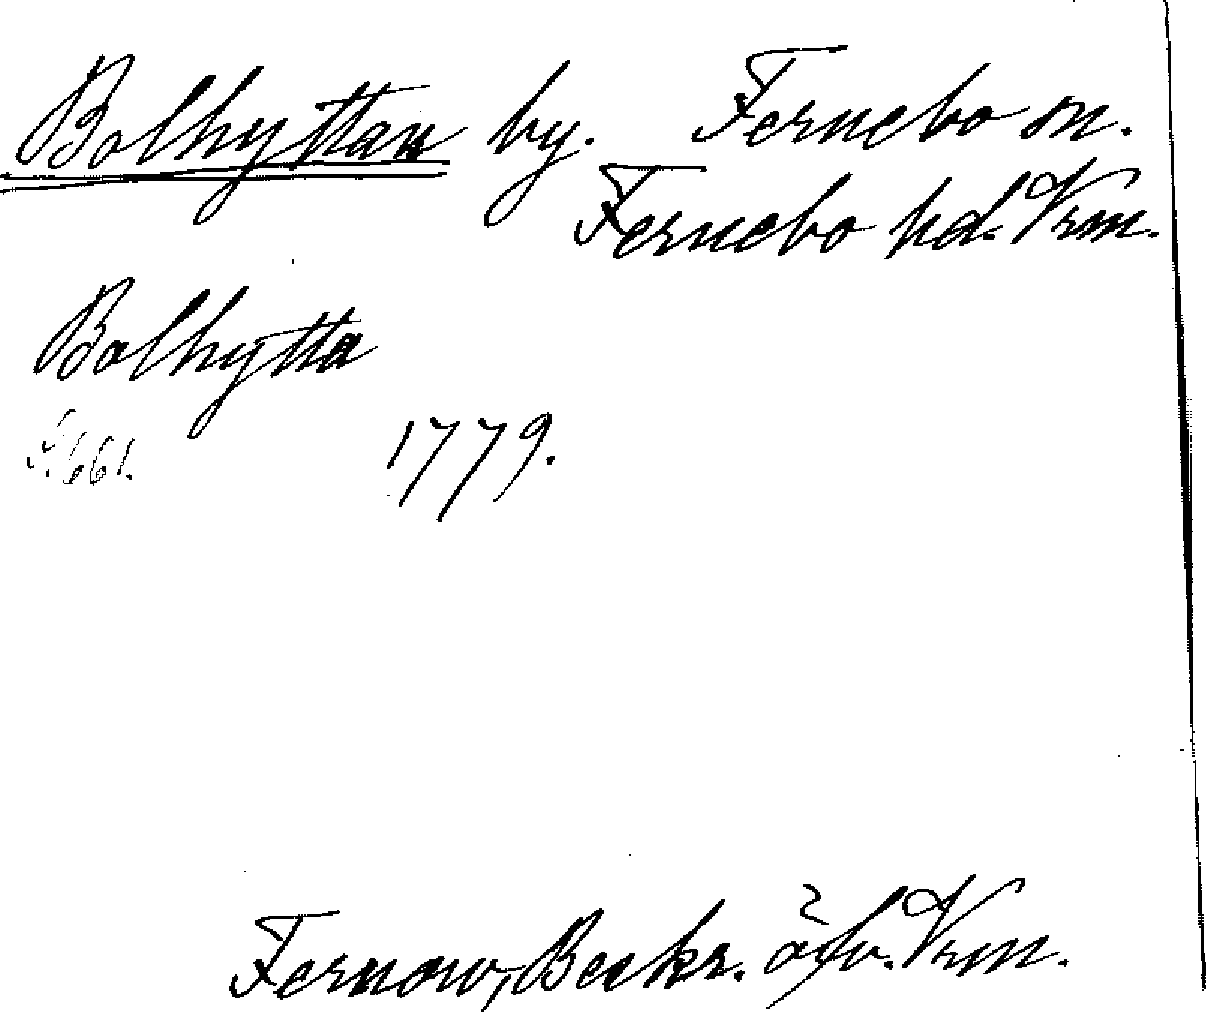 Bolhyttan by. Fernebo sn.
Fernebo hd. Vrm.
Bolhytta
S. 661. 1779.
Fernow, Beskr. öfv. Vrm.